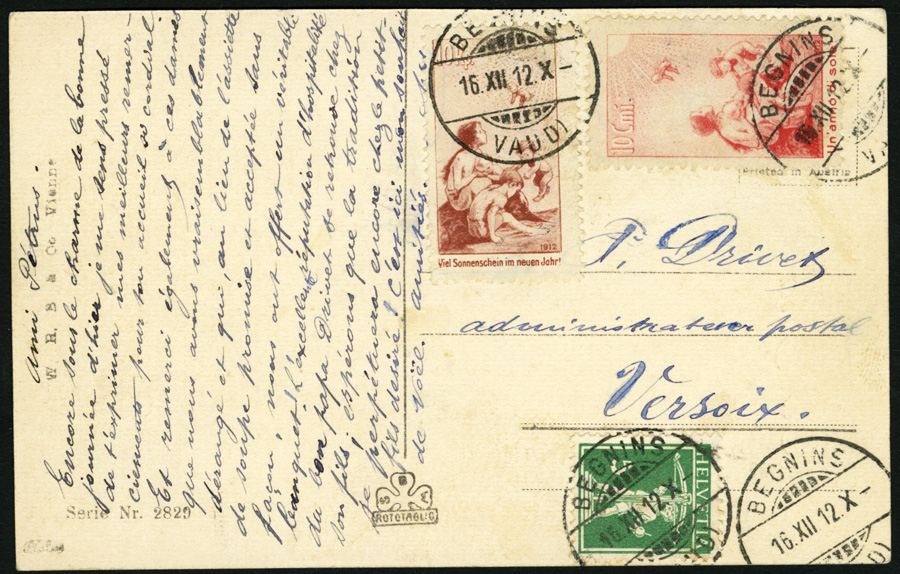 Ami Pétrus.
Encore sous le charme de la bonne
journée d'hier je me sens pressé
de t'exprimer mes meilleurs remer-
ciements pour ton accueil si cordial
Et remerci également à ces dames
que nous avons vraisemblablement
dérangé et qui, au lieu de l'assiette
de soupe promise et acceptée sans
façon, nous ont offert un véritable
banquet. L'excellente réputation d'hospitalité
du bon papa Drivet se retrouve chez
son fils, espérons que la tradition
se perpétuera encore chez le petit-
fils désiré. C'est ici mon souhait
de Noël. amitiés.
W. R. B & Co Vienne
Serie Nr. 2829
S B M
ROTOTABLIC
10 Cmi.
1912
Viel Sonnenschein im neuen Jahr!
BEGNINS
16.XII 12.X –
(VAUD)
10 Cmi.
Un anno di sole
BEGNINS
16.XII 12
Printed in Austria
P. Drivet
administrateur postal
Versoix.
HELVETIA
BEGNINS
16.XII 12.X
BEGNINS
16.XII 12.X –
(VAUD)